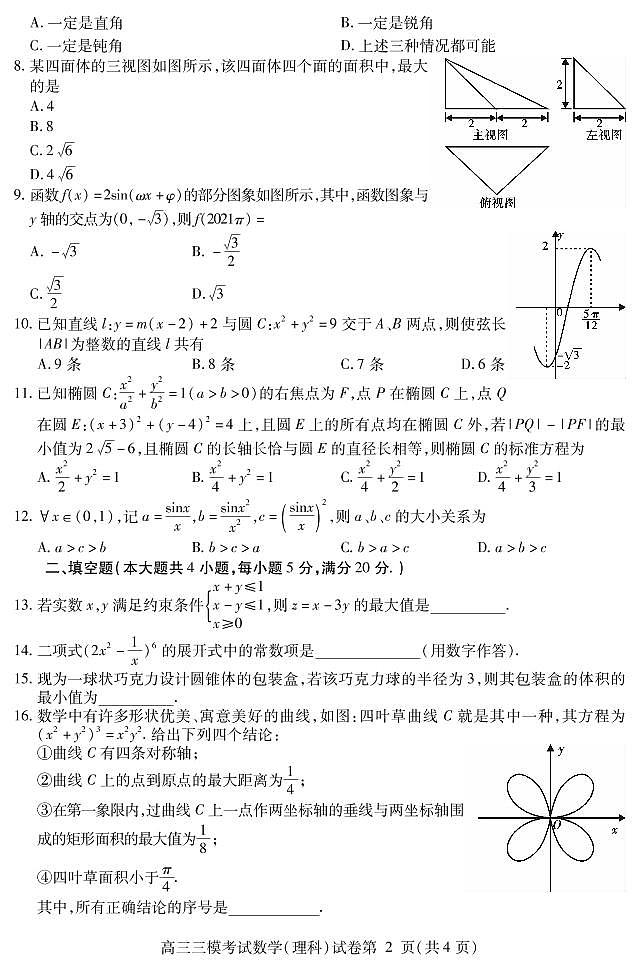 A. 一定是直角 B. 一定是锐角
C. 一定是钝角 D. 上述三种情况都可能
8. 某四面体的三视图如图所示,该四面体四个面的面积中,最大
的是
A. 4
B. 8
C. 2√6
D. 4√6
2 2 主视图
2 2 左视图
俯视图
9. 函数f(x)=2sin(ωx+φ)的部分图象如图所示,其中,函数图象与
y轴的交点为(0,-√3),则f(2021π)=
A. -√3 B. -√3/2
C. √3/2 D. √3
y 2 0 5π/12 -√3 -2
10. 已知直线l:y=m(x-2)+2与圆C:x²+y²=9交于A、B两点,则使弦长
|AB|为整数的直线l共有
A. 9条 B. 8条 C. 7条 D. 6条
11. 已知椭圆C:x²/a²+y²/b²=1(a>b>0)的右焦点为F,点P在椭圆C上,点Q
在圆E:(x+3)²+(y-4)²=4上,且圆E上的所有点均在椭圆C外,若|PQ|-|PF|的最
小值为2√5-6,且椭圆C的长轴长恰与圆E的直径长相等,则椭圆C的标准方程为
A. x²/2+y²=1 B. x²/4+y²=1 C. x²/4+y²/2=1 D. x²/4+y²/3=1
12. ∀x∈(0,1),记a=sinx/x,b=sinx²/x²,c=(sinx/x)²,则a、b、c的大小关系为
A. a>c>b B. b>c>a C. b>a>c D. a>b>c
二、填空题(本大题共4小题,每小题5分,满分20分.)
13. 若实数x,y满足约束条件{x+y≤1 x-y≤1 x≥0,则z=x-3y的最大值是________.
14. 二项式(2x²-1/x)⁶的展开式中的常数项是________(用数字作答).
15. 现为一球状巧克力设计圆锥体的包装盒,若该巧克力球的半径为3,则其包装盒的体积的
最小值为________.
16. 数学中有许多形状优美、寓意美好的曲线,如图:四叶草曲线C就是其中一种,其方程为
(x²+y²)³=x²y².给出下列四个结论:
①曲线C有四条对称轴;
②曲线C上的点到原点的最大距离为1/4;
③在第一象限内,过曲线C上一点作两坐标轴的垂线与两坐标轴围
成的矩形面积的最大值为1/8;
④四叶草面积小于π/4.
其中,所有正确结论的序号是________.
y O x
高三三模考试数学(理科)试卷第 2 页(共4页)